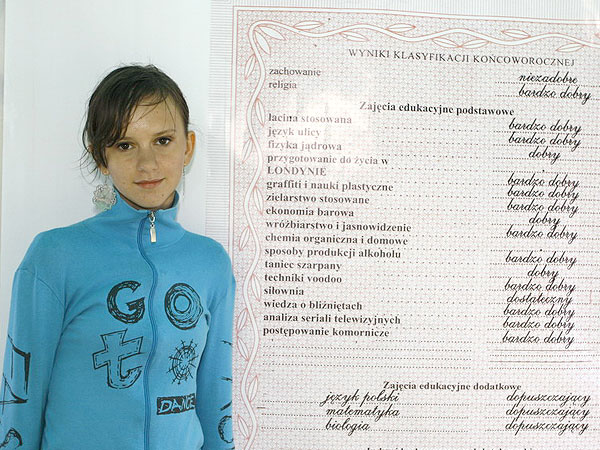 WYNIKI KLASYFIKACJI KOŃCOWOROCZNEJ
zachowanie niezadobre
religia bardzo dobry
Zajęcia edukacyjne podstawowe
łacina stosowana bardzo dobry
język ulicy bardzo dobry
fizyka jądrowa dobry
przygotowanie do życia w
LONDYNIE bardzo dobry
graffiti i nauki plastyczne bardzo dobry
zielarstwo stosowane bardzo dobry
ekonomia barowa dobry
wróżbiarstwo i jasnowidzenie bardzo dobry
chemia organiczna i domowe
sposoby produkcji alkoholu bardzo dobry
taniec szarpany dobry
techniki voodoo bardzo dobry
siłownia dostateczny
wiedza o bliźniętach bardzo dobry
analiza seriali telewizyjnych bardzo dobry
postępowanie komornicze bardzo dobry
Zajęcia edukacyjne dodatkowe
język polski dopuszczający
matematyka dopuszczający
biologia dopuszczający
GO
t
DANCE